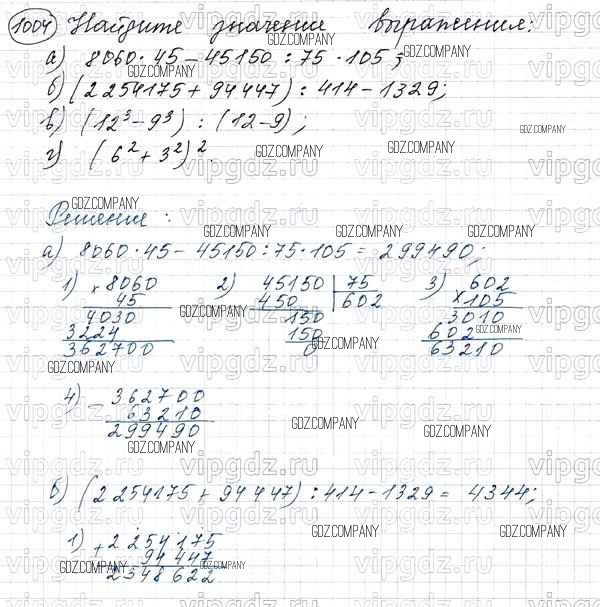 1004 Найдите значение выражения:
а) 8060·45-45150:75·105;
б) (2254175+94447):414-1329;
в) (12³-9³):(12-9);
г) (6²+3²)².
Решение:
а) 8060·45-45150:75·105=299490;
1) ×8060 2) 45150 | 75 3) 602
45 450 | 602 ×105
4030 150 3010
3224 150 602
362700 0 63210
4) - 362700
63210
299490
б) (2254175+94447):414-1329=4344;
1) + 2254175
94447
2348622
GDZ.COMPANY
vipgdz.ru